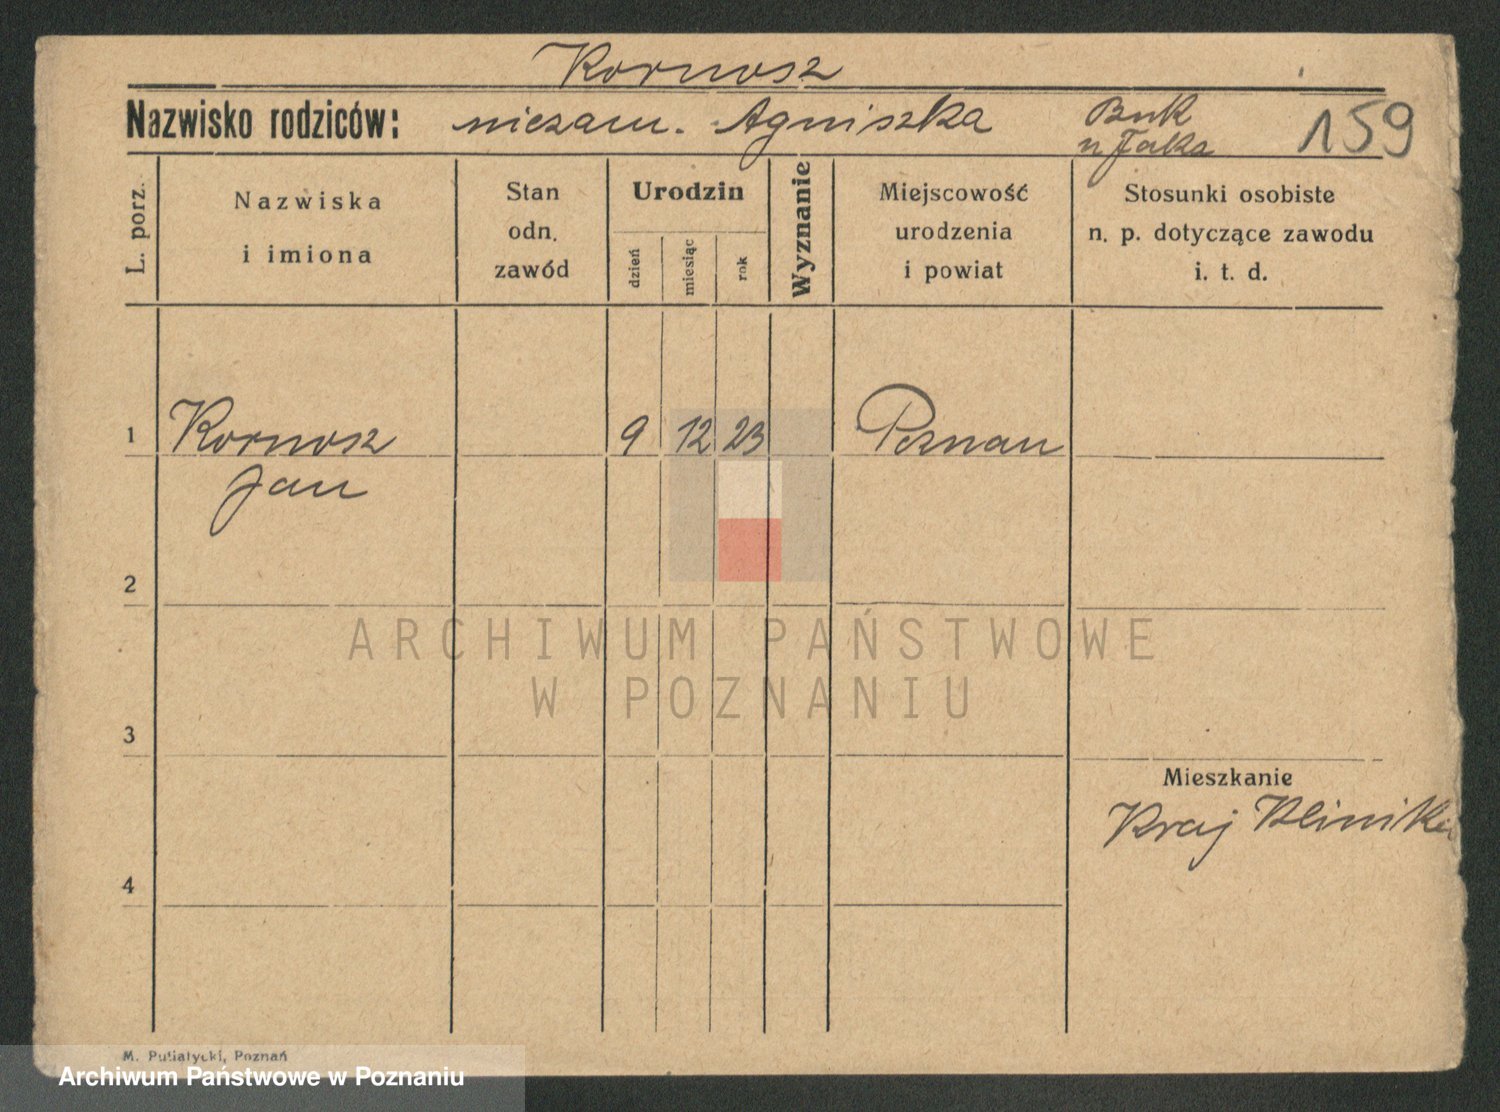 Kornosz
Nazwisko rodziców: niezam. Agniszka
Buk
u Jaks
159
L. porz.
Nazwiska
i imiona
Stan
odn.
zawód
Urodzin
dzień
miesiąc
rok
Wyznanie
Miejscowość
urodzenia
i powiat
Stosunki osobiste
n. p. dotyczące zawodu
i. t. d.
1 Kornosz 9 12 23 Poznan
Jan
2
ARCHIWUM PAŃSTWOWE
W POZNANIU
3
Mieszkanie
Kraj Klinika
4
M. Putiatycki, Poznań
Archiwum Państwowe w Poznaniu